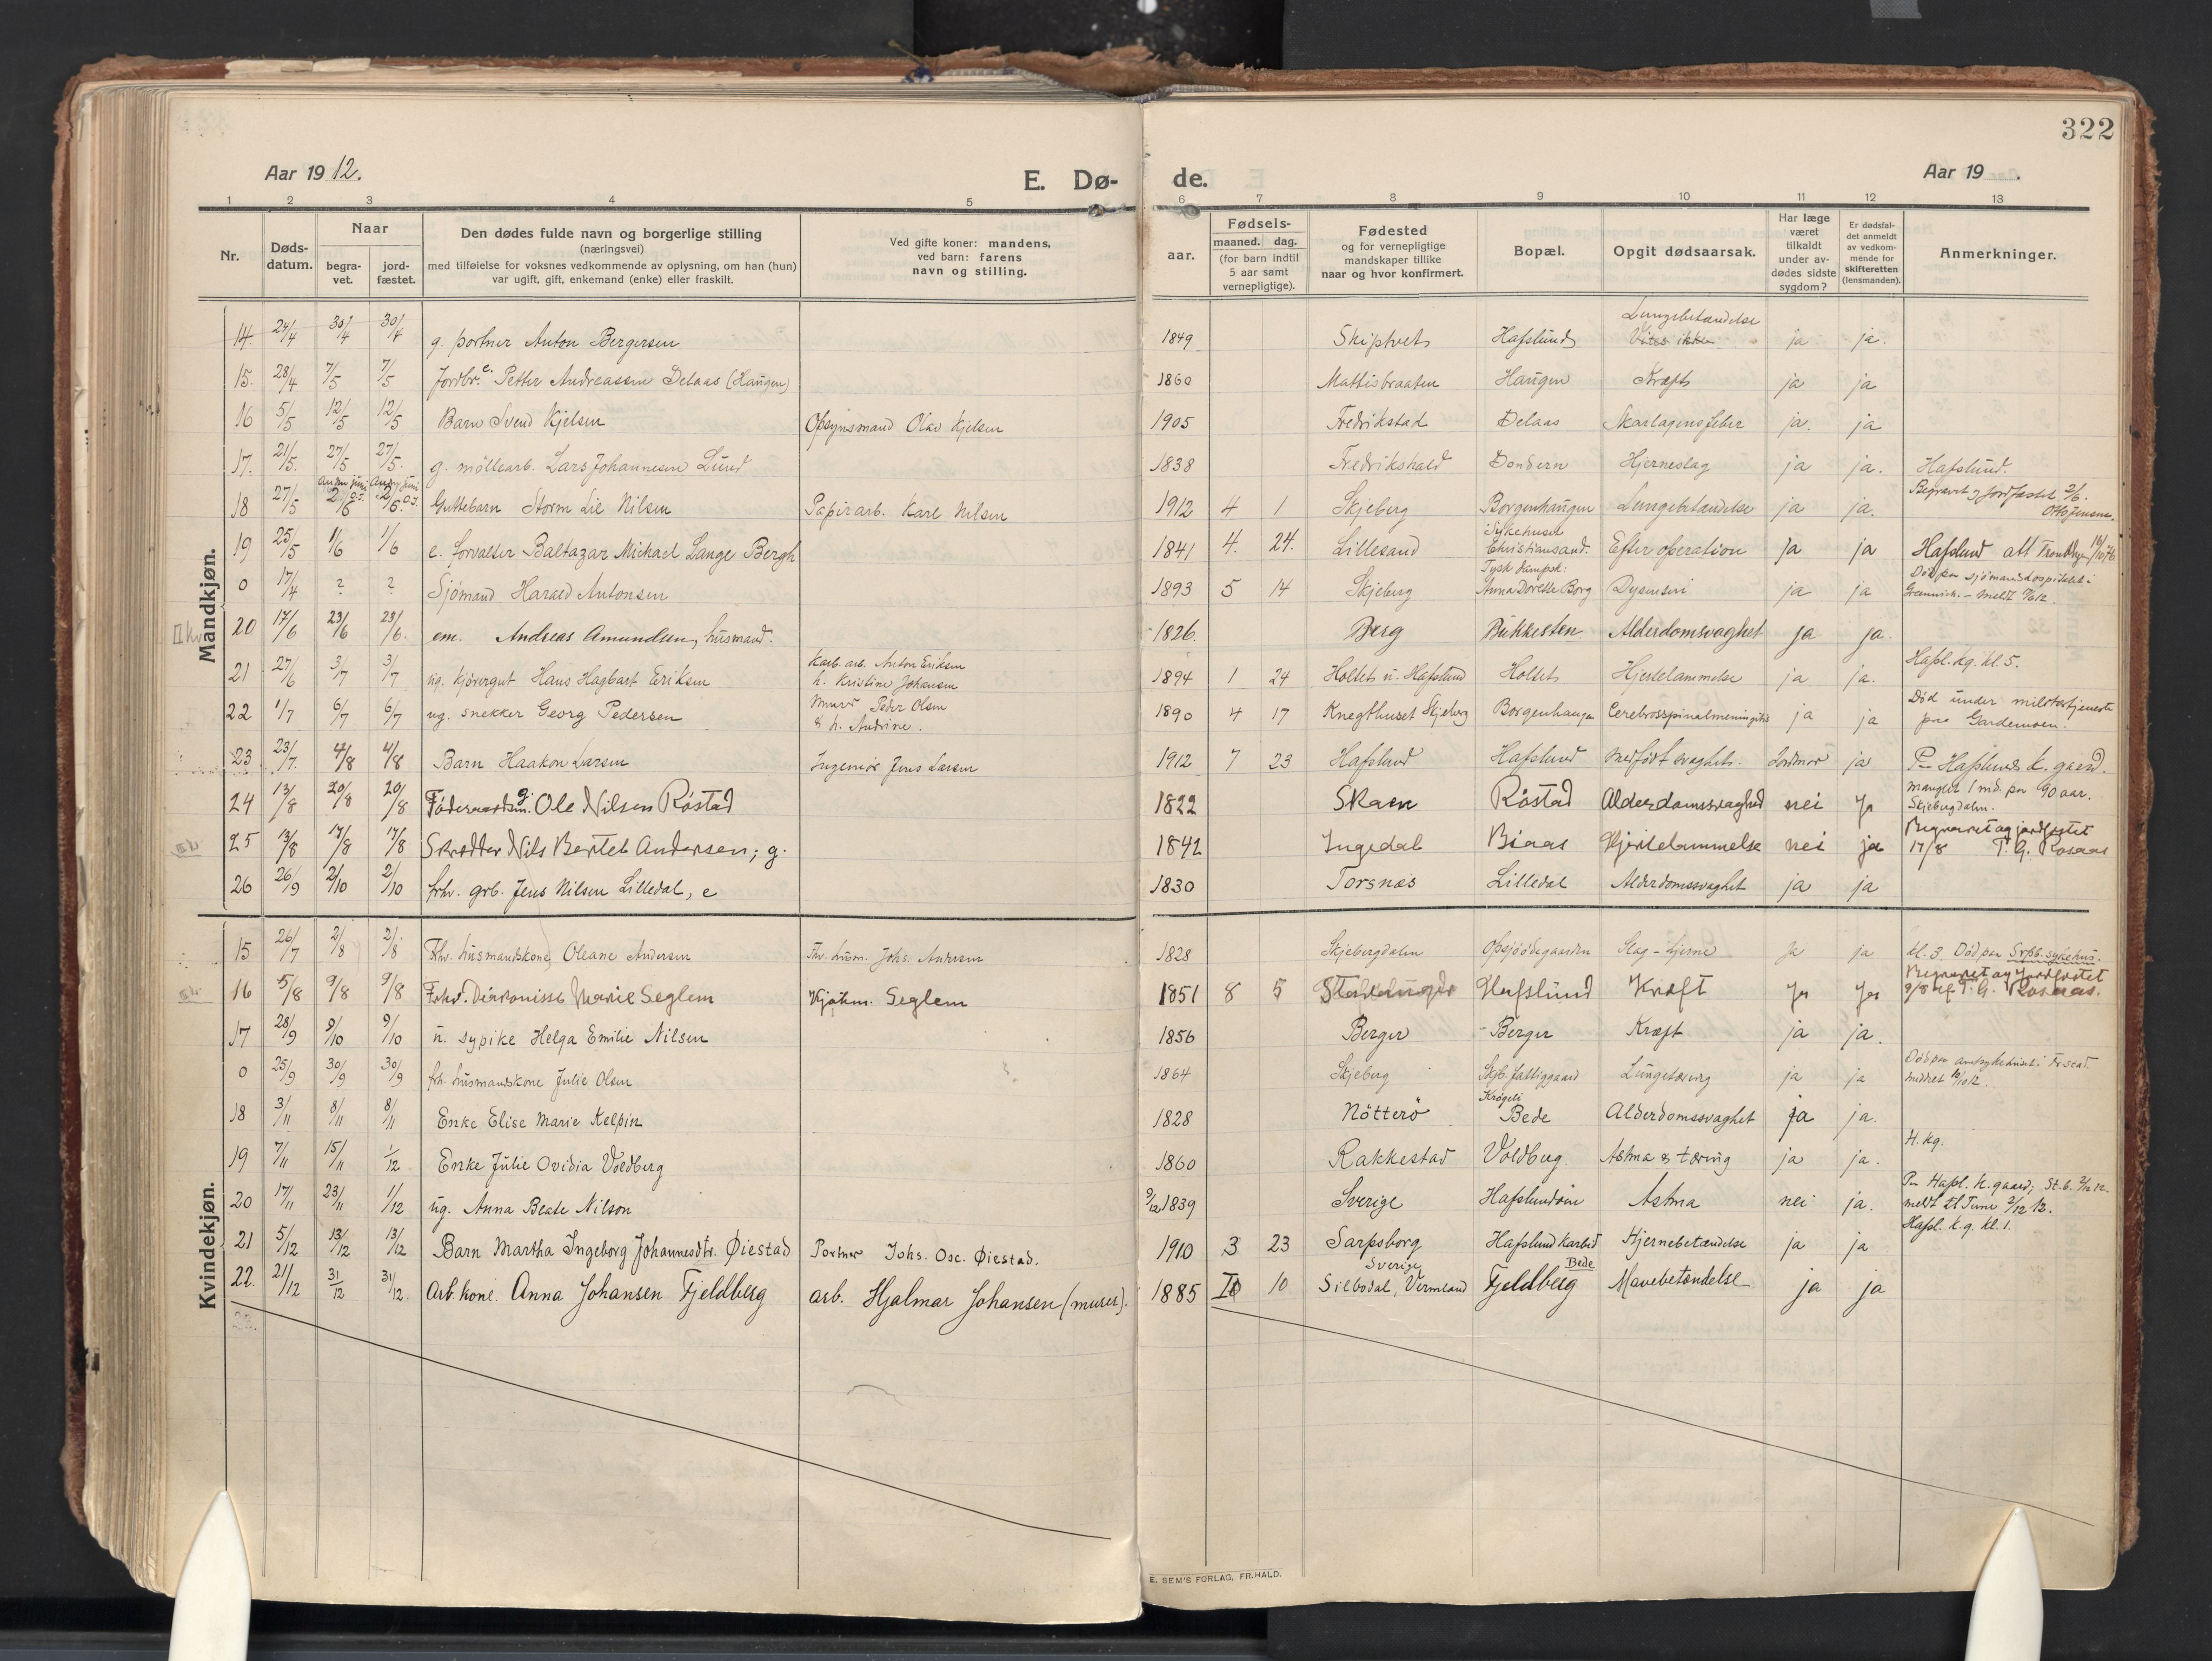 322
Aar 1912.
E. Dø-
de.
Aar 19 .
1 2 3 4 5 6 7 8 9 10 11 12 13
Nr.
Døds-
datum.
Naar
begra-
vet.
jord-
fæstet.
Den dødes fulde navn og borgerlige stilling
(næringsvei)
med tilføielse for voksnes vedkommende av oplysning, om han (hun)
var ugift, gift, enkemand (enke) eller fraskilt.
Ved gifte koner: mandens,
ved barn: farens
navn og stilling.
Fødsels-
aar.
maaned. dag.
(for barn indtil
5 aar samt
vernepligtige).
Fødested
og for vernepligtige
mandskaper tillike
naar og hvor konfirmert.
Bopæl.
Opgit dødsaarsak.
Har læge
været
tilkaldt
under av-
dødes sidste
sygdom?
Er dødsfal-
det anmeldt
av vedkom-
mende for
skifteretten
(lensmanden).
Anmerkninger.
Mandkjøn.
14 24/4 30/4 30/4 g. portner Anton Bergersen 1849 Skiptvet Hafslund Lungebetændelse Vites ikke ja ja.
15. 28/4 7/5 7/5 Jordbr. e. Petter Andreassen Delaas (Haugen) 1860 Mattisbraaten Haugen Kræft ja ja
16 5/5 12/5 12/5 Barn Svend Kjelsen Opsynsmand Olav Kjelsen 1905 Fredrikstad Delaas Skarlagensfeber ja. ja
17. 21/5. 27/5 27/5. g. møllearb. Lars Johannesen Lund 1838 Fredrikshald Dondern Hjerneslag ja ja. Hafslund.
18 27/5 2/6 2/6 Guttebarn Storm Lie Nilsen Papirarb. Karl Nilsen 1912 4 1 Skjeberg Borgenhaugen Lungebetændelse ja ja. Begravet og jordfæstet 2/6. Otto Jensen.
19 25/5 1/6 1/6 e. forvalter Baltazar Michael Lange Bergh 1841 4. 24. Lillesand Sykehuset Christiansand. Efter operation ja ja Hafslund att.
0 17/4 ? ? Sjömand Harald Antonsen 1893 5 14 Skjeberg Tysk dampsk: Anna Dorette Borg Dysenteri ja ja Død paa sjømandshospitalet i Greenwich. – meldt
20 17/6 23/6 23/6. em. Andreas Amundsen, husmand. 1826. Berg Bukkesten Alderdomsvaghet ja ja
21 27/6 3/7 3/7 ug. kjøregut Hans Hagbart Eriksen Karb. arb. Anton Eriksen h. Kristine Johansen 1894 1 24 Holtet u. Hafslund Holtet Hjertelammelse ja ja. Hafsl. kg. kl. 5.
22 1/7 6/7 6/7 ug. snekker Georg Pedersen Murer Peder Olsen & h. Andrine. 1890 4 17 Knegthuset Skjeberg Borgenhaugen Cerebrospinalmeningitis ja ja Död under militærtjeneste paa Gardemoen.
23 23/7. 4/8 4/8 Barn Haakon Larsen Ingeniør Jens Larsen 1912 7 23 Hafslund Hafslund medfødt svaghet. Jordmor ja Paa Hafslunds k. gaard.
24 13/8 20/8 20/8 Föderaadsm. g. Ole Nilsen Röstad 1822 Skaen Röstad Alderdomssvaghed nei Ja mangler 1 md. paa 90 aar. Skjebergdalen.
25 13/8 17/8 17/8 Skrædder Nils Bertel Andersen; g. 1842 Ingedal Biaas Hjertelammelse nei ja Begravet og jordfestet 17/8 T. G. Rosaas
26 26/9 2/10 2/10 frhv. grb. Jens Nilsen Lilledal, e 1830 Torsnæs Lilledal Alderdomssvaghet ja ja
Kvindekjøn.
15 26/7 2/8 2/8 Fhv. husmandskone, Oleane Andersen Fhv. husm. Johs. Andersen 1828 Skjebergdalen Opsjöödegaarden Slag – hjerne ja ja kl. 3. Död paa Srpb. sykehus.
16 5/8 9/8 9/8 Frhv. Diakonisse Marie Seglem Kjøbm. Seglem 1851 8 5 Stavanger Hafslund Kræft Ja Ja Begravet og Jordfestet 9/8 af T. G. Rosaas.
17 28/9 9/10 9/10 u. sypike Helga Emilie Nilsen 1856 Berger Berger Kræft ja ja.
0 25/9 30/9 30/9 frh. husmandskone Julie Olsen 1864 Skjeberg Skjb. fattiggaard Lungetæring ja ja Død paa amtsykehuset i Fr.stad. meldt 10/10 12.
18 3/11 8/11 8/11 Enke Elise Marie Kelpin 1828 Nötterö Krøgeli Bede Alderdomssvaghet ja ja.
19 7/11 15/11 1/12 Enke Julie Ovidia Voldberg 1860 Rakkestad Voldberg. Astma & tæring ja ja. H. kg.
20 17/11 23/11 1/12 ug. Anna Beate Nilson 9/12 1839 Sverige Hafslundöen Astma nei ja. Paa Hafsl. k. gaard; meldt til Tune 2/12 12.
21 5/12 13/12 13/12 Barn Martha Ingeborg Johannesdtr. Øiestad Portner Johs. Osc. Øiestad. 1910 3 23 Sarpsborg Hafslund Karbid Hjernebetændelse ja ja Hafsl. k. g. kl. 1.
22. 21/12 31/12 31/12. Arb. kone. Anna Johansen Fjeldberg arb. Hjalmar Johansen (murer). 1885 10 10 Sverige Silbodal, Vermland Bede Fjeldberg Mavebetændelse ja ja
23.
E. SEM'S FORLAG, FR.HALD.